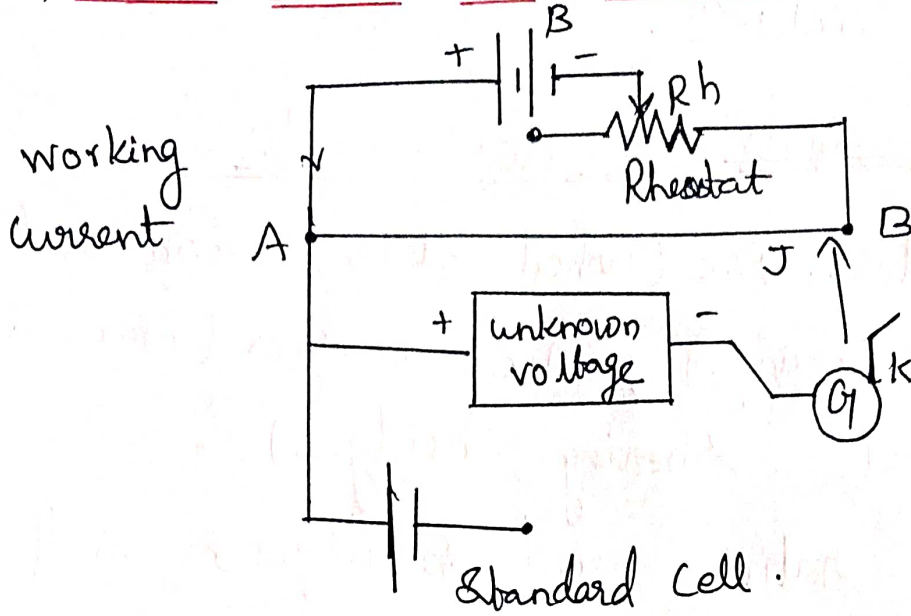 B
+ -
Rh
Rheostat
working
current
A
B
J
+ unknown -
voltage
K
G
Standard cell.